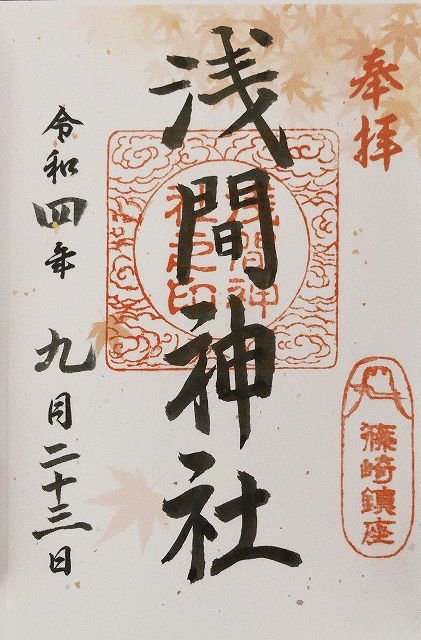 奉拝
篠崎鎮座
浅間神社
浅間神
社之印
令和四年 九月二十三日